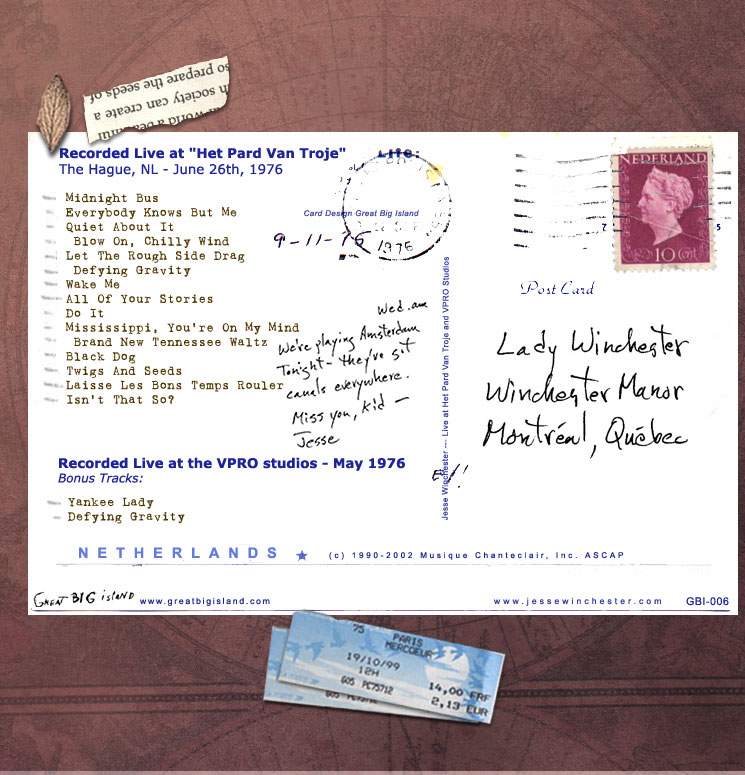 so prepare the seeds of
society can create a
Recorded Live at "Het Pard Van Troje"
The Hague, NL - June 26th, 1976
Midnight Bus
Everybody Knows But Me
Quiet About It
Blow On, Chilly Wind
Let The Rough Side Drag
Defying Gravity
Wake Me
All Of Your Stories
Do It
Mississippi, You're On My Mind
Brand New Tennessee Waltz
Black Dog
Twigs And Seeds
Laisse Les Bons Temps Rouler
Isn't That So?
Recorded Live at the VPRO studios - May 1976
Bonus Tracks:
Yankee Lady
Defying Gravity
Card Design Great Big Island
9-11-76
1976
Wed. am
We're playing Amsterdam
Tonight - they've got
canals everywhere.
Miss you, kid -
Jesse
Jesse Winchester — Live at Het Pard Van Troje and VPRO Studios
NEDERLAND
10 Cnt
7
5
Post Card
Lady Winchester
Winchester Manor
Montréal, Québec
NETHERLANDS
(c) 1990-2002 Musique Chanteclair, Inc. ASCAP
GREAT BIG island
www.greatbigisland.com
www.jessewinchester.com
GBI-006
75 PARIS
MERCOEUR
19/10/99
12H
G05 PC75712
14,00 FRF
2,13 EUR